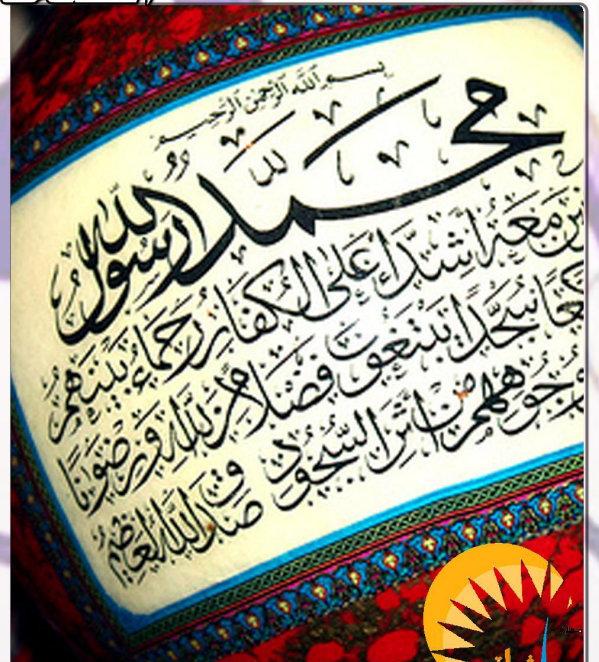 بسم الله الرحمن الرحيم
محمد رسول الله
معه أشداء على الكفار رحماء بينهم
سجدا يبتغون فضلا من الله ورضوانا
وجوههم من أثر السجود صدق الله العظيم